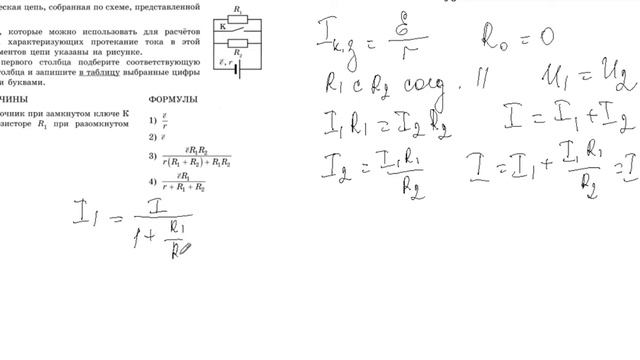 еская цепь, собранная по схеме, представленной
R₁
K
R₂
ℰ, r
, которые можно использовать для расчётов
характеризующих протекание тока в этой
ментов цепи указаны на рисунке.
первого столбца подберите соответствующую
толбца и запишите в таблицу выбранные цифры
и буквами.
ЧИНЫ
ФОРМУЛЫ
очник при замкнутом ключе К
езисторе R₁ при разомкнутом
1) ℰ/r
2) ℰ
3) ℰR₁R₂/(r(R₁ + R₂) + R₁R₂)
4) ℰR₁/(r + R₁ + R₂)
I к.з = ℰ/r R₀ = 0
R₁ с R₂ соед. // U₁ = U₂
I₁R₁ = I₂R₂ I = I₁ + I₂
I₂ = I₁R₁/R₂ I = I₁ + I₁R₁/R₂ = I
I₁ = I/(1 + R₁/R